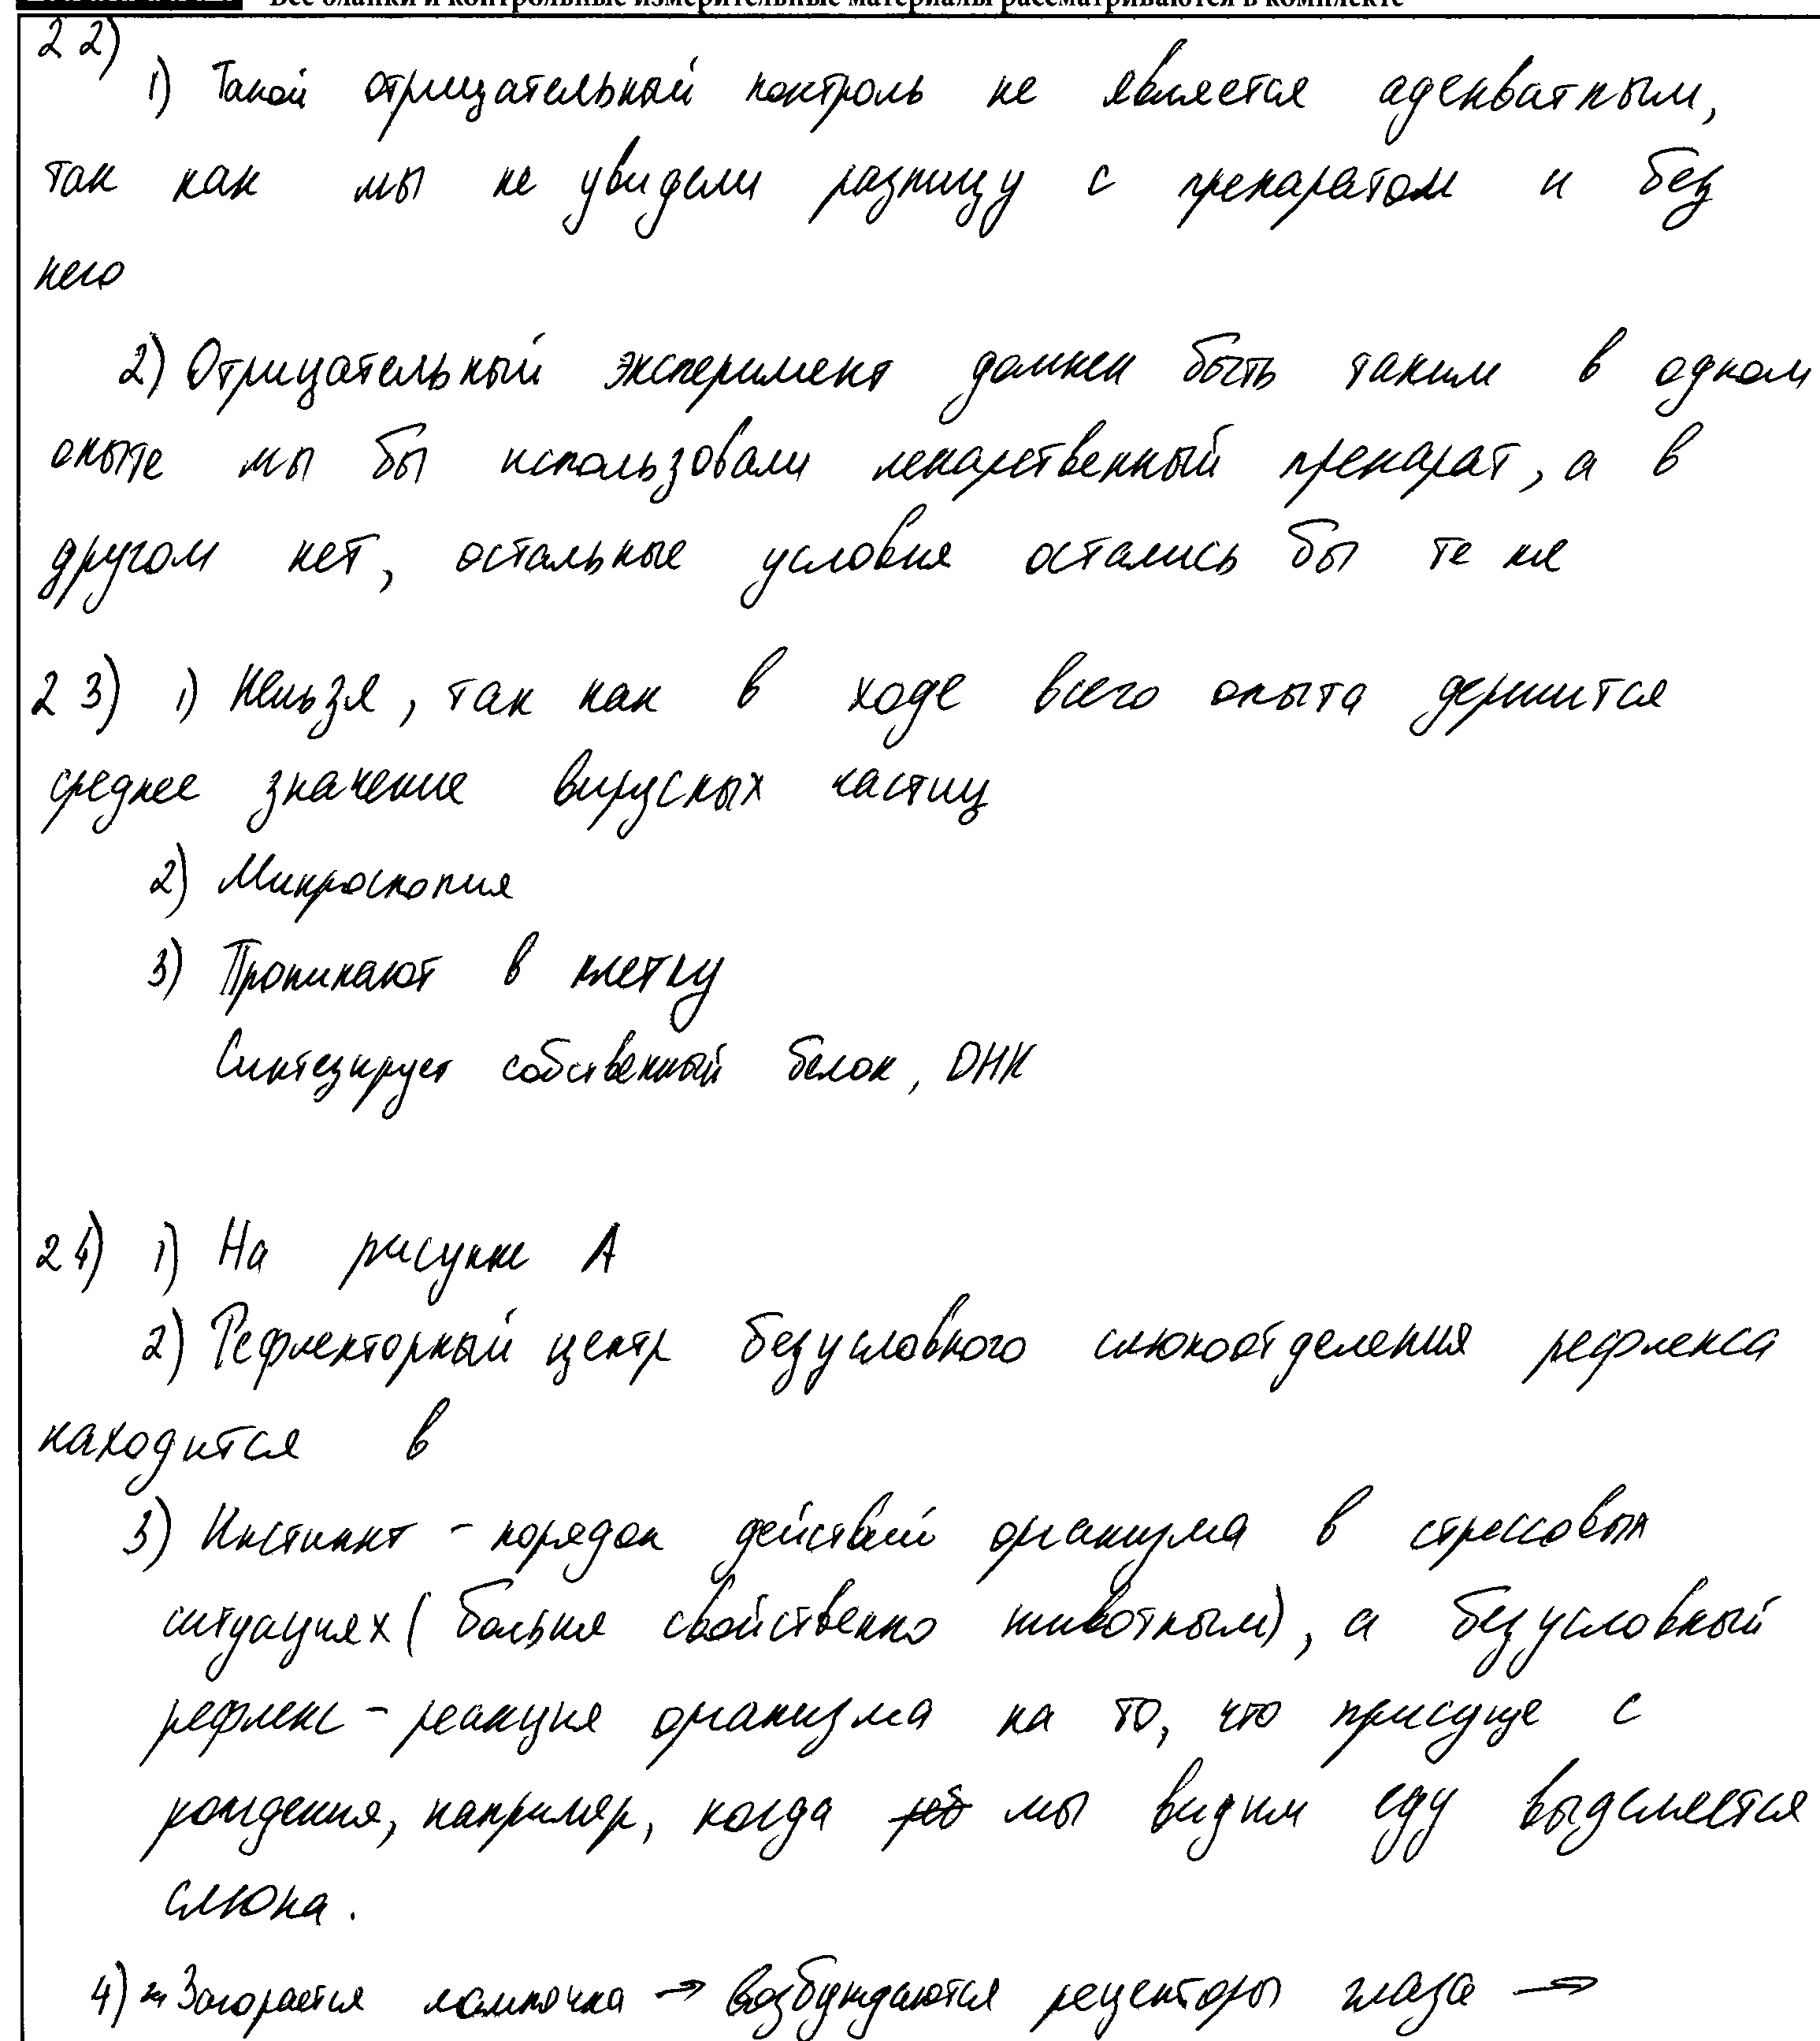 Все бланки и контрольные измерительные материалы рассматриваются в комплекте
22)
1) Такой отрицательный контроль не является адекватным,
так как мы не увидели разницу с препаратом и без
него
2) Отрицательный эксперимент должен быть таким в одном
опыте мы бы использовали лекарственный препарат, а в
другом нет, остальные условия остались бы те же
23) 1) Нельзя, так как в ходе всего опыта держится
среднее значение вирусных частиц
2) Микроскопия
3) Проникают в клетку
Синтезирует собственный белок, ДНК
24) 1) На рисунке А
2) Рефлекторный центр безусловного слюноотделения рефлекса
находится в
3) Инстинкт - порядок действий организма в стрессовых
ситуациях (больше свойственно животным), а безусловный
рефлекс - реакция организма на то, что присуще с
рождения, например, когда мы видим еду выделяется
слюна.
4) Загорается лампочка → возбуждаются рецепторы глаза →